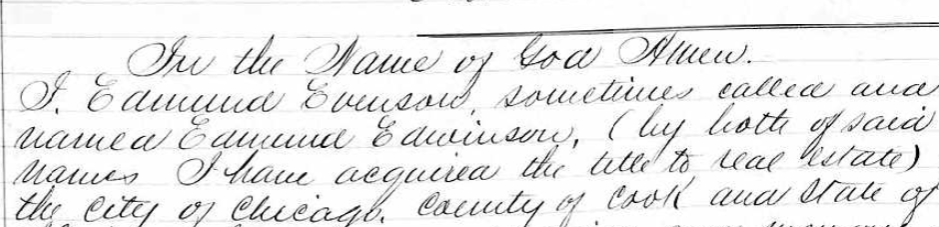 In the Name of God Amen.
I. Edmund Evenson, sometimes called and
named Edmund Edwinson, (by both of said
names I have acquired the title to real estate)
the City of Chicago, County of Cook and State of